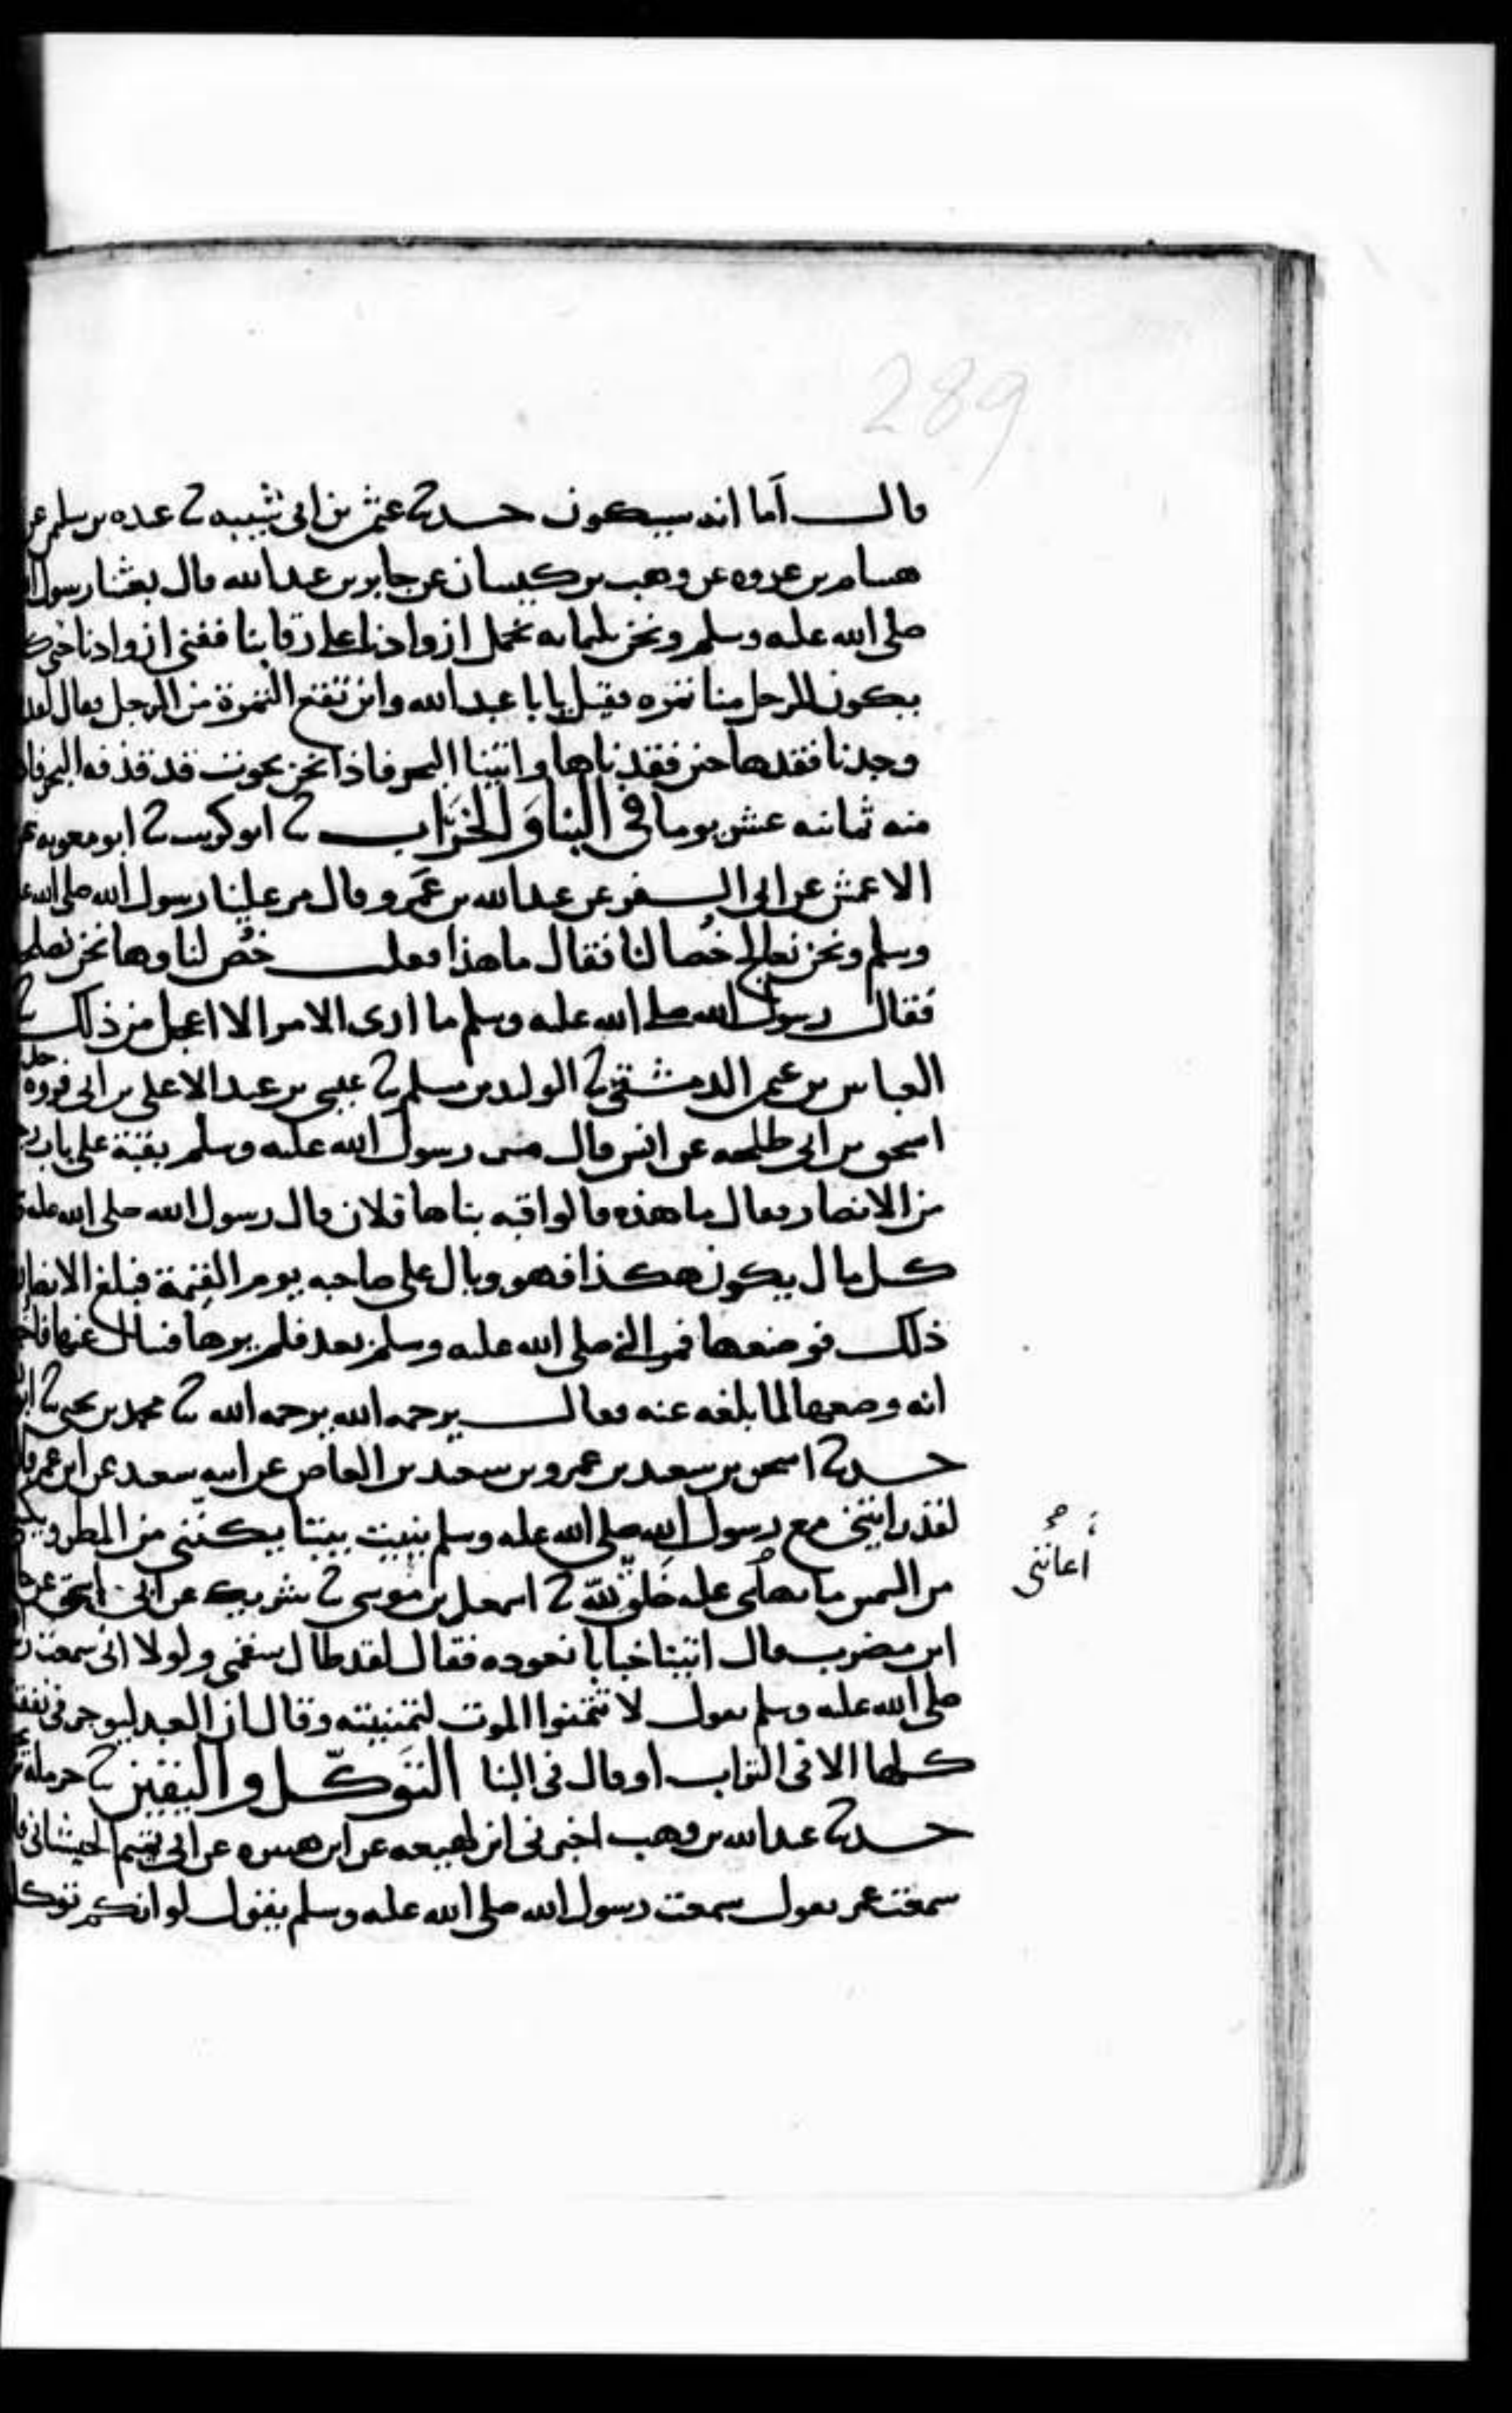 289
قال أما انه سيكون حدثنا عثمن بن ابي شيبه ثنا عبده بن سلمن عن
هشام بن عروه عن وهب بن كيسان عن جابر بن عبد الله قال بعثنا رسول
صلى الله عليه وسلم ونحن ثلثمايه نحمل ازوادنا على رقابنا ففنى ازوادنا حتى
يكون للرجل منا تمره فقيل يابا عبد الله واين تقع التمرة من الرجل فقال لقد
وجدنا فقدها حين فقدناها واتينا البحر فاذا نحن بحوت قد قذفه البحر
منه ثمانيه عشر يوما في البنا والخراب ثنا ابو كريب ثنا ابو معويه
الاعمش عن ابي السفر عن عبد الله بن عمرو قال مر علينا رسول الله صلى الله
وسلم ونحن نعالج خصا لنا فقال ما هذا فقلت خص لنا وها نحن نصلحه
فقال رسول الله صلى الله عليه وسلم ما ارى الامر الا اعجل من ذلك ثنا
العباس بن عثمن الدمشقي ثنا الوليد بن مسلم ثنا عيسى بن عبد الاعلى بن ابي فروه حدثني
اسحق بن ابي طلحه عن انس قال مر رسول الله عليه وسلم بقبة على باب رجل
من الانصار فقال ما هذه قالوا قبه بناها فلان قال رسول الله صلى الله عليه
كل مال يكون هكذا فهو وبال على صاحبه يوم القيمة فبلغ الانصاري
ذلك فوضعها فمر النبي صلى الله عليه وسلم بعد فلم يرها فسال عنها
انه وضعها لما بلغه عنه فقال يرحمه الله يرحمه الله ثنا محمد بن يحيى ثنا
حدثنا اسحق بن سعيد بن عمرو بن سعيد بن العاص عن ابيه سعيد عن ابن عمر
لقد رايتني مع رسول الله صلى الله عليه وسلم بنيت بيتا يكنني من المطر
من الشمس ما عليه خلق لله ثنا اسمعيل بن موسى ثنا شريك عن ابي اسحق عن
ابن مضرب قال اتينا خبابا نعوده فقال لقد طال سقمي ولولا اني سمعت
صلى الله عليه وسلم يقول لا تتمنوا الموت لتمنيته وقال ان العبد ليوجر في نفقته
كلها الا في التراب او قال في البنا التوكل واليقين ثنا حرمله
حدثنا عبد الله بن وهب اخبرني ابن لهيعه عن ابن هبيره عن ابي تميم الجيشاني
سمعت عمر يقول سمعت رسول الله صلى الله عليه وسلم يقول لو انكم
أعانني